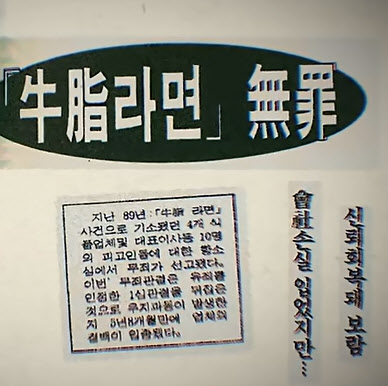 「牛脂라면」 無罪
신뢰회복돼 보람
會社손실 입었지만…
지난 89년 「牛脂 라면」
사건으로 기소됐던 4개 식
품업체및 대표이사등 10명
의 피고인들에 대한 항소
심에서 무죄가 선고됐다.
이번 무죄판결은 유죄를
인정한 1심판결을 뒤집은
것으로 우지파동이 발생한
지 5년8개월만에 업체의
결백이 입증됐다.